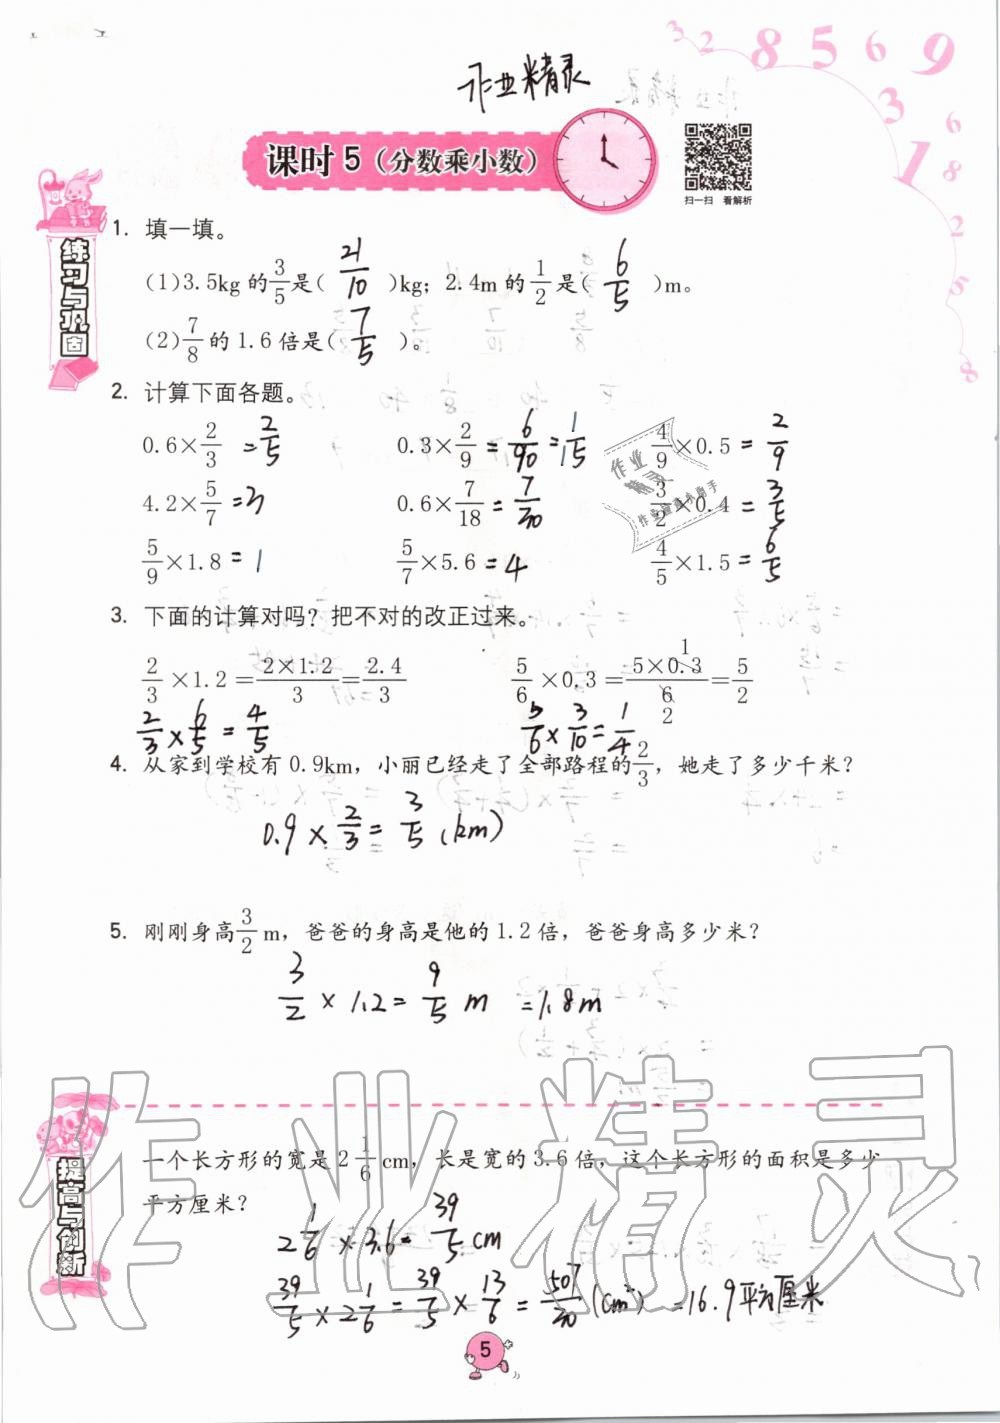 作业精灵
课时5(分数乘小数)
扫一扫 看解析
练习与巩固
1. 填一填。
(1)3.5kg的3/5是( 21/10 )kg;2.4m的1/2是( 6/5 )m。
(2)7/8的1.6倍是( 7/5 )。
2. 计算下面各题。
0.6×2/3 =2/5 0.3×2/9 =6/90=1/15 4/9×0.5 =2/9
4.2×5/7 =3 0.6×7/18 =7/30 3/2×0.4 =3/5
5/9×1.8 =1 5/7×5.6 =4 4/5×1.5 =6/5
3. 下面的计算对吗?把不对的改正过来。
2/3×1.2=2×1.2/3=2.4/3 5/6×0.3=5×0.3/6=5/2
1
2
2/3×6/5=4/5 5/6×3/10=1/4
4. 从家到学校有0.9km,小丽已经走了全部路程的2/3,她走了多少千米?
0.9×2/3=3/5(km)
5. 刚刚身高3/2m,爸爸的身高是他的1.2倍,爸爸身高多少米?
3/2×1.2=9/5m =1.8m
提高与创新
一个长方形的宽是2 1/6cm,长是宽的3.6倍,这个长方形的面积是多少
平方厘米?
2 1/6×3.6=39/5cm
39/5×2 1/6=39/5×13/6=507/30(cm²) =16.9平方厘米
5
作业精灵